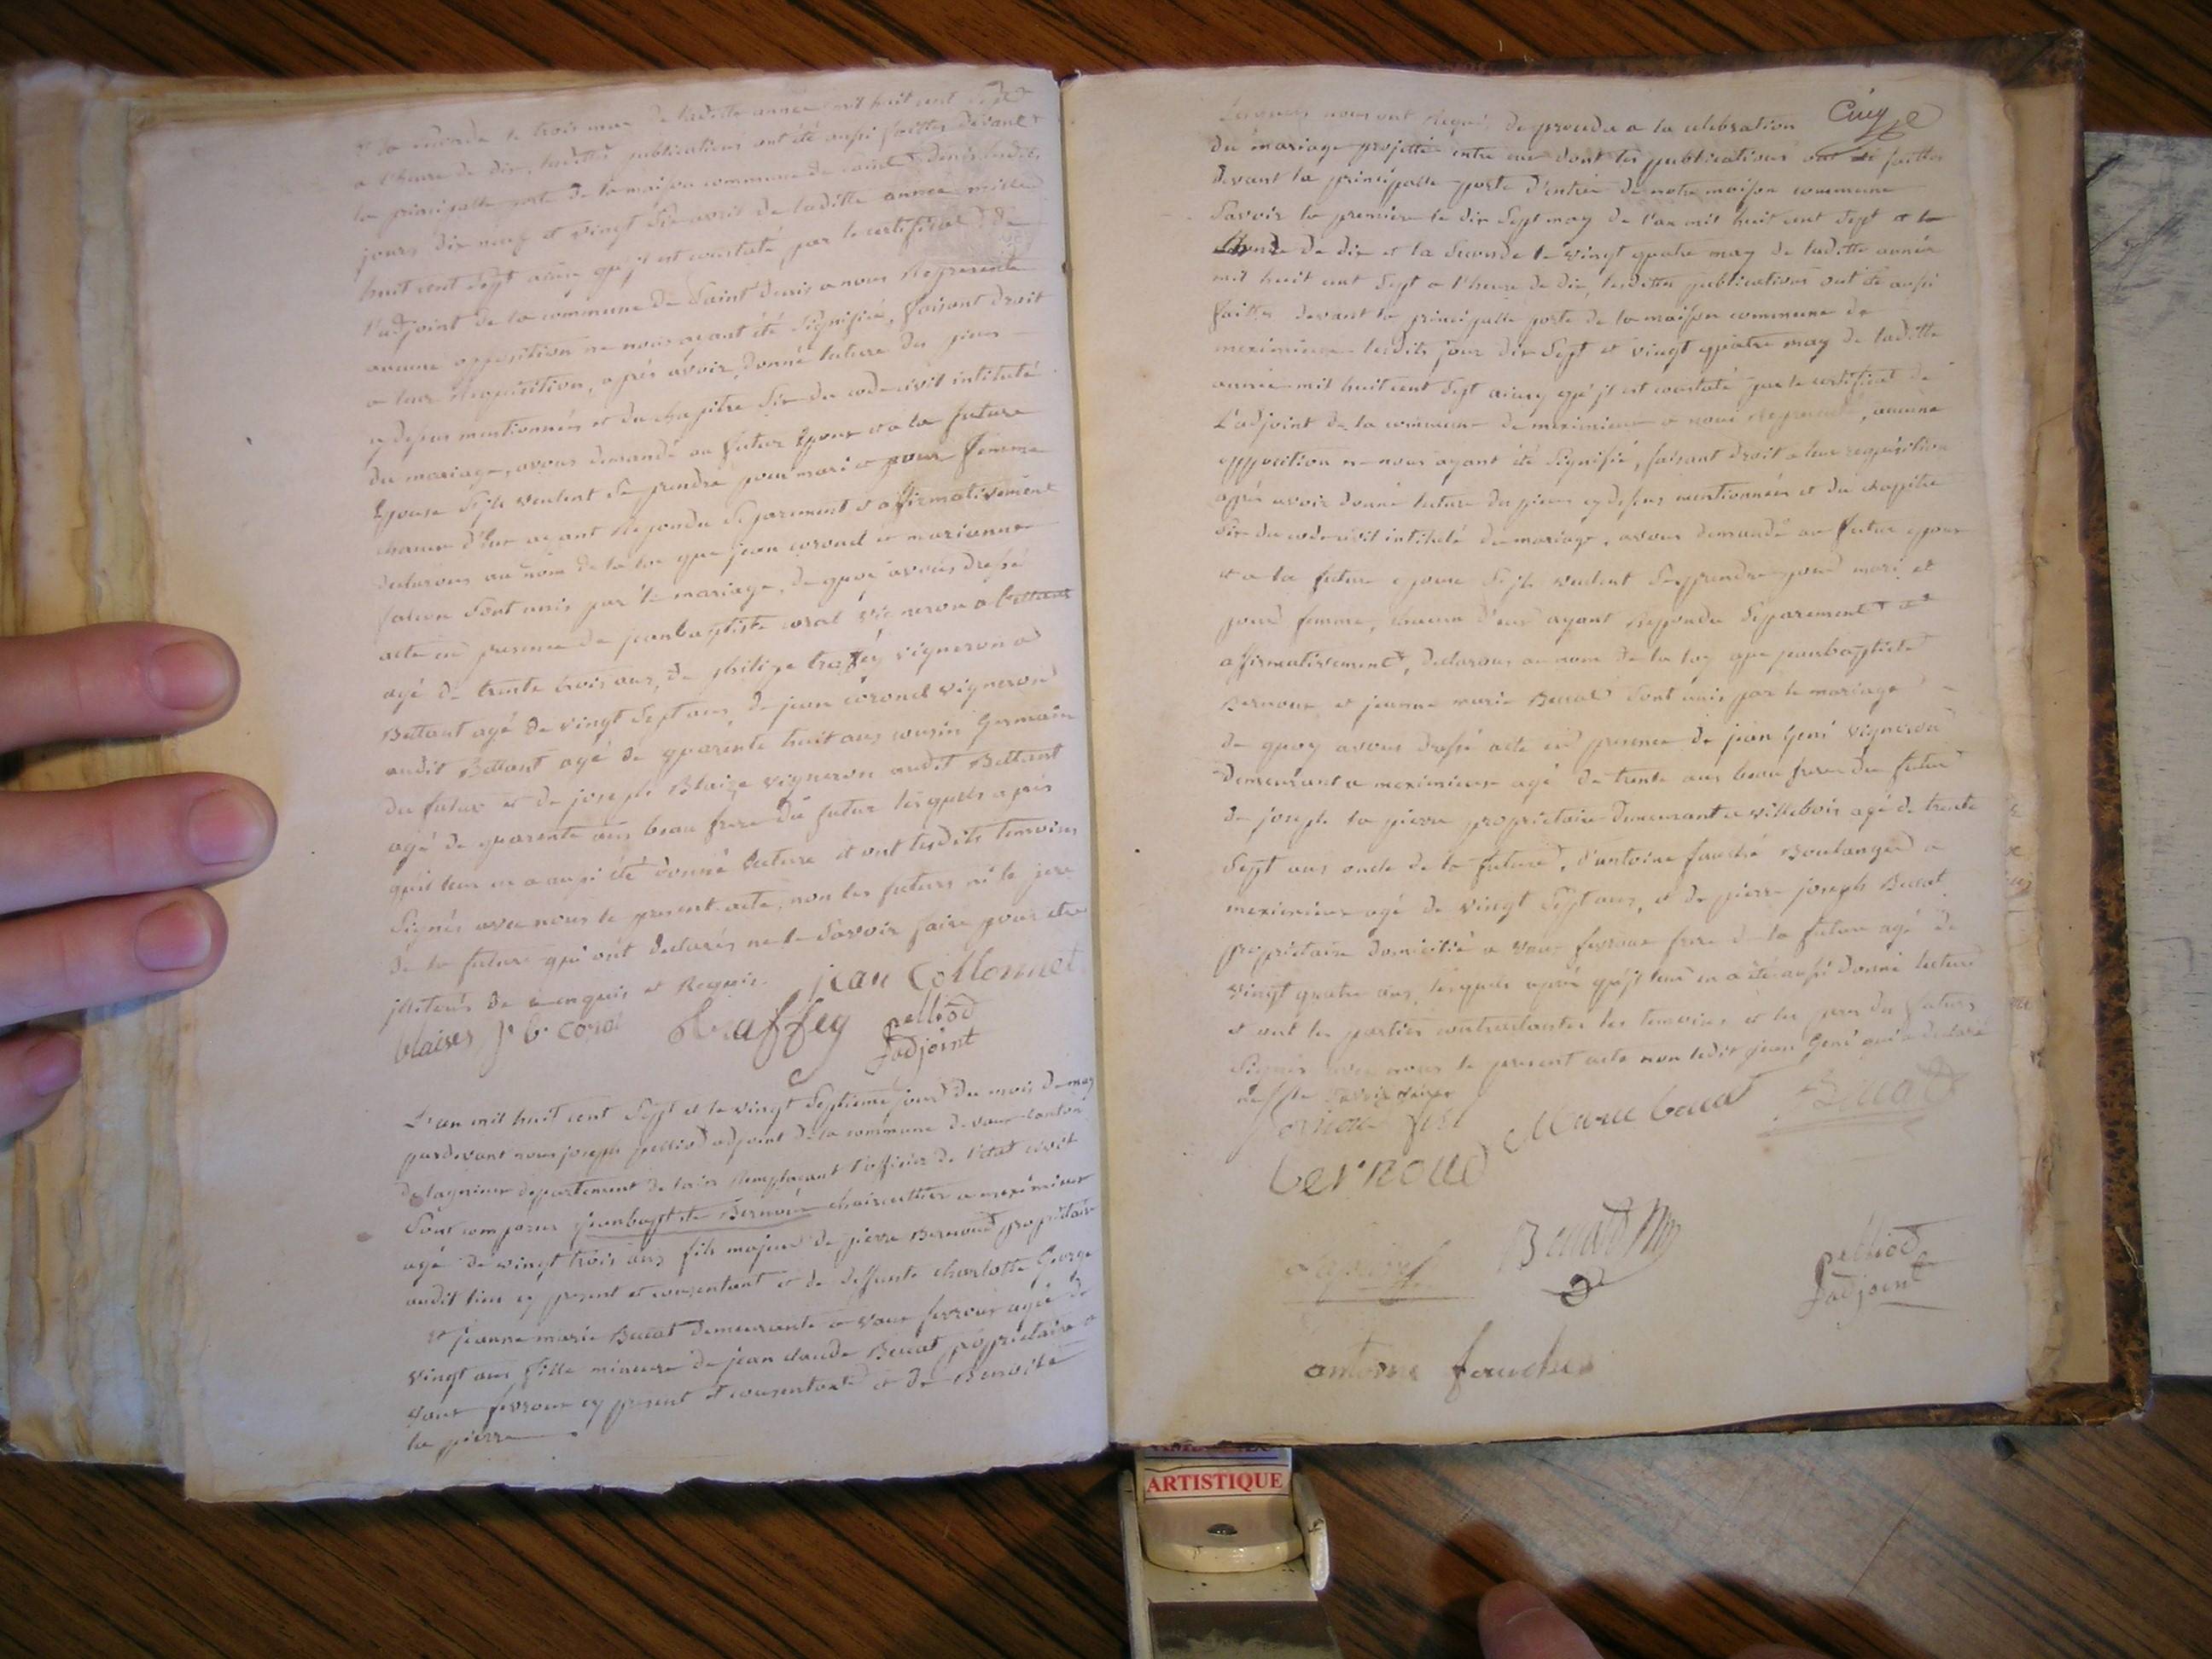 la seconde le trois may de laditte année mil huit cent sept
a l'heure de dix, lesdittes publications ont été aussi faittes devant
la principalle porte de la maison commune de saint denis lesdits
jours dix neuf et vingt six avril de laditte année mille
huit cent sept ainsy qu'jl est constaté par le certificat de
l'adjoint de la commune de Saint denis a nous Represente
aucune opposition ne nous ayant été Signifié, faisant droit
a leur Requisition, aprés avoir donné lecture des pieces
cy dessus mentionnées et du chapitre Six du code civil intitulé
du mariage, avons demandé au futur Epoux et a la future
Epouse S'jls veulent Se prendre pour mari et pour femme
chacun d'Eux ayant Repondu Separement et affirmativement
declarons au nom de la loi que jean coronel et marianne
falcon Sont unis par le mariage, de quoi avons dressé
acte en presence de jeanbaptiste corat vigneron a Bettant
agé de trente trois ans, de philipe traffey vigneron a
Bettant agé de vingt Sept ans, de jean coronel vigneron
audit Bettant agé de quarente huit ans cousin Germain
du futur et de joseph Blaize vigneron audit Bettant
agé de quarente ans beau frere du futur lesquels aprés
qu'il leur en a aussi été donné lecture et ont lesdits temoins
Signés avec nous le present acte, non les futurs ni le pere
de la future qui ont declarés ne le Savoir faire pour etre
jlliterés de ce enquis et Requis. jean Collonnel
blaises J b cora traffey pelliod
l'adjoint
L'an mil huit cent Sept et le vingt Septieme jour du mois de may
pardevant nous joseph pelliod adjoint de la commune de vaux canton
de lagnieux departement de lain Remplaçant l'officier de l'etat civil
Sont comparus jeanbaptiste Bernoux chaircuttier a meximieux
agé de vingt trois ans fils majeur de pierre Bernoud proprietaire
audit lieu cy present et consentant et de deffunte charlotte George
Et jeanne marie Bucat demeurante a vaux fevroux agée de
vingt ans fille mineure de jean claude Bucat proprietaire a
vaux fevroux cy present et consentant et de Benoite
la pierre
Lesquels nous ont Requis de proceder a la celebration
du mariage projetté entre eux dont les publications ont été faittes
devant la principalle porte d'entrée de notre maison commune
Savoir la premiere le dix Sept may de l'an mil huit cent Sept a
de dix et la Seconde le vingt quatre may de laditte année
mil huit cent Sept a l'heure de dix, lesdittes publications ont été aussi
faittes devant la principalle porte de la maison commune de
meximieux lesdits jour dix Sept et vingt quatre may de laditte
année mil huit cent Sept ainsy qu'jl est constaté par le certificat de
L'adjoint de la commune de meximieux a nous Representé, aucune
opposition ne nous ayant été Signifié, faisant droit a leur requisition
aprés avoir donné lecture des pieces cy dessus mentionnées et du chapitre
Six du code civil intitulé du mariage, avons demandé au futur epoux
et a la future epouse S'jls veulent Se prendre pour mari et
pour femme, chacun d'eux ayant Repondu Separement et
affirmativement, declarons au nom de la loy que jeanbaptiste
Bernoux et jeanne marie Bucat Sont unis par le mariage
de quoy avons dressé acte en presence de jean Gené vigneron
demeurant a meximieux agé de trente ans beau frere du futur
de joseph la pierre proprietaire demeurant a villebois agé de trente
Sept ans oncle de la future, d'antoine fauché Boulanger a
meximieux agé de vingt Sept ans, et de pierre joseph Bucat
proprietaire domicilié a vaux fevroux frere de la future agé de
vingt quatre ans, lesquels aprés qu'jl leur en a été aussi donné lecture
et ont les parties contractantes les temoins et les peres des futurs
Signés avec nous le present acte non ledit jean Gené qui a declaré
ne le Savoir faire
fils Marie bucat Bucat
bernoud
Bucat pelliod
l'adjoint
antoine fauche